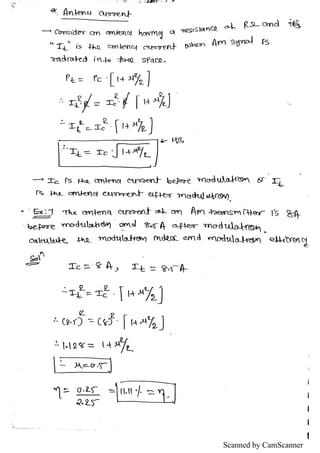 * Antenu current
→ Consider am antenna having a resistance of R Ω and its
"It" is the antena current when Am Signal is
radiated into free space.
Pt = Pc [1+ μ²/2]
∴ It² R = Ic² R [1+ μ²/2]
∴ It² = Ic² [1+ μ²/2]
∴ It = Ic √1+μ²/2
→ Ic is the antenna current before modulation & It
is the antenna current after modulation.
- Ex:-1 The antena current of an Am transmitter is 8A
before modulation and 8.5 A after modulation.
calculate the modulation index and modulation efficiency
Sol^n
Ic = 8 A, It = 8.5 A
∴ It² = Ic² [1+ μ²/2]
∴ (8.5)² = (8)² [1+ μ²/2]
∴ 1.128 = 1+ μ²/2
∴ μ=0.5
η = 0.25/2.25 = 11.11 % = η.
Scanned by CamScanner